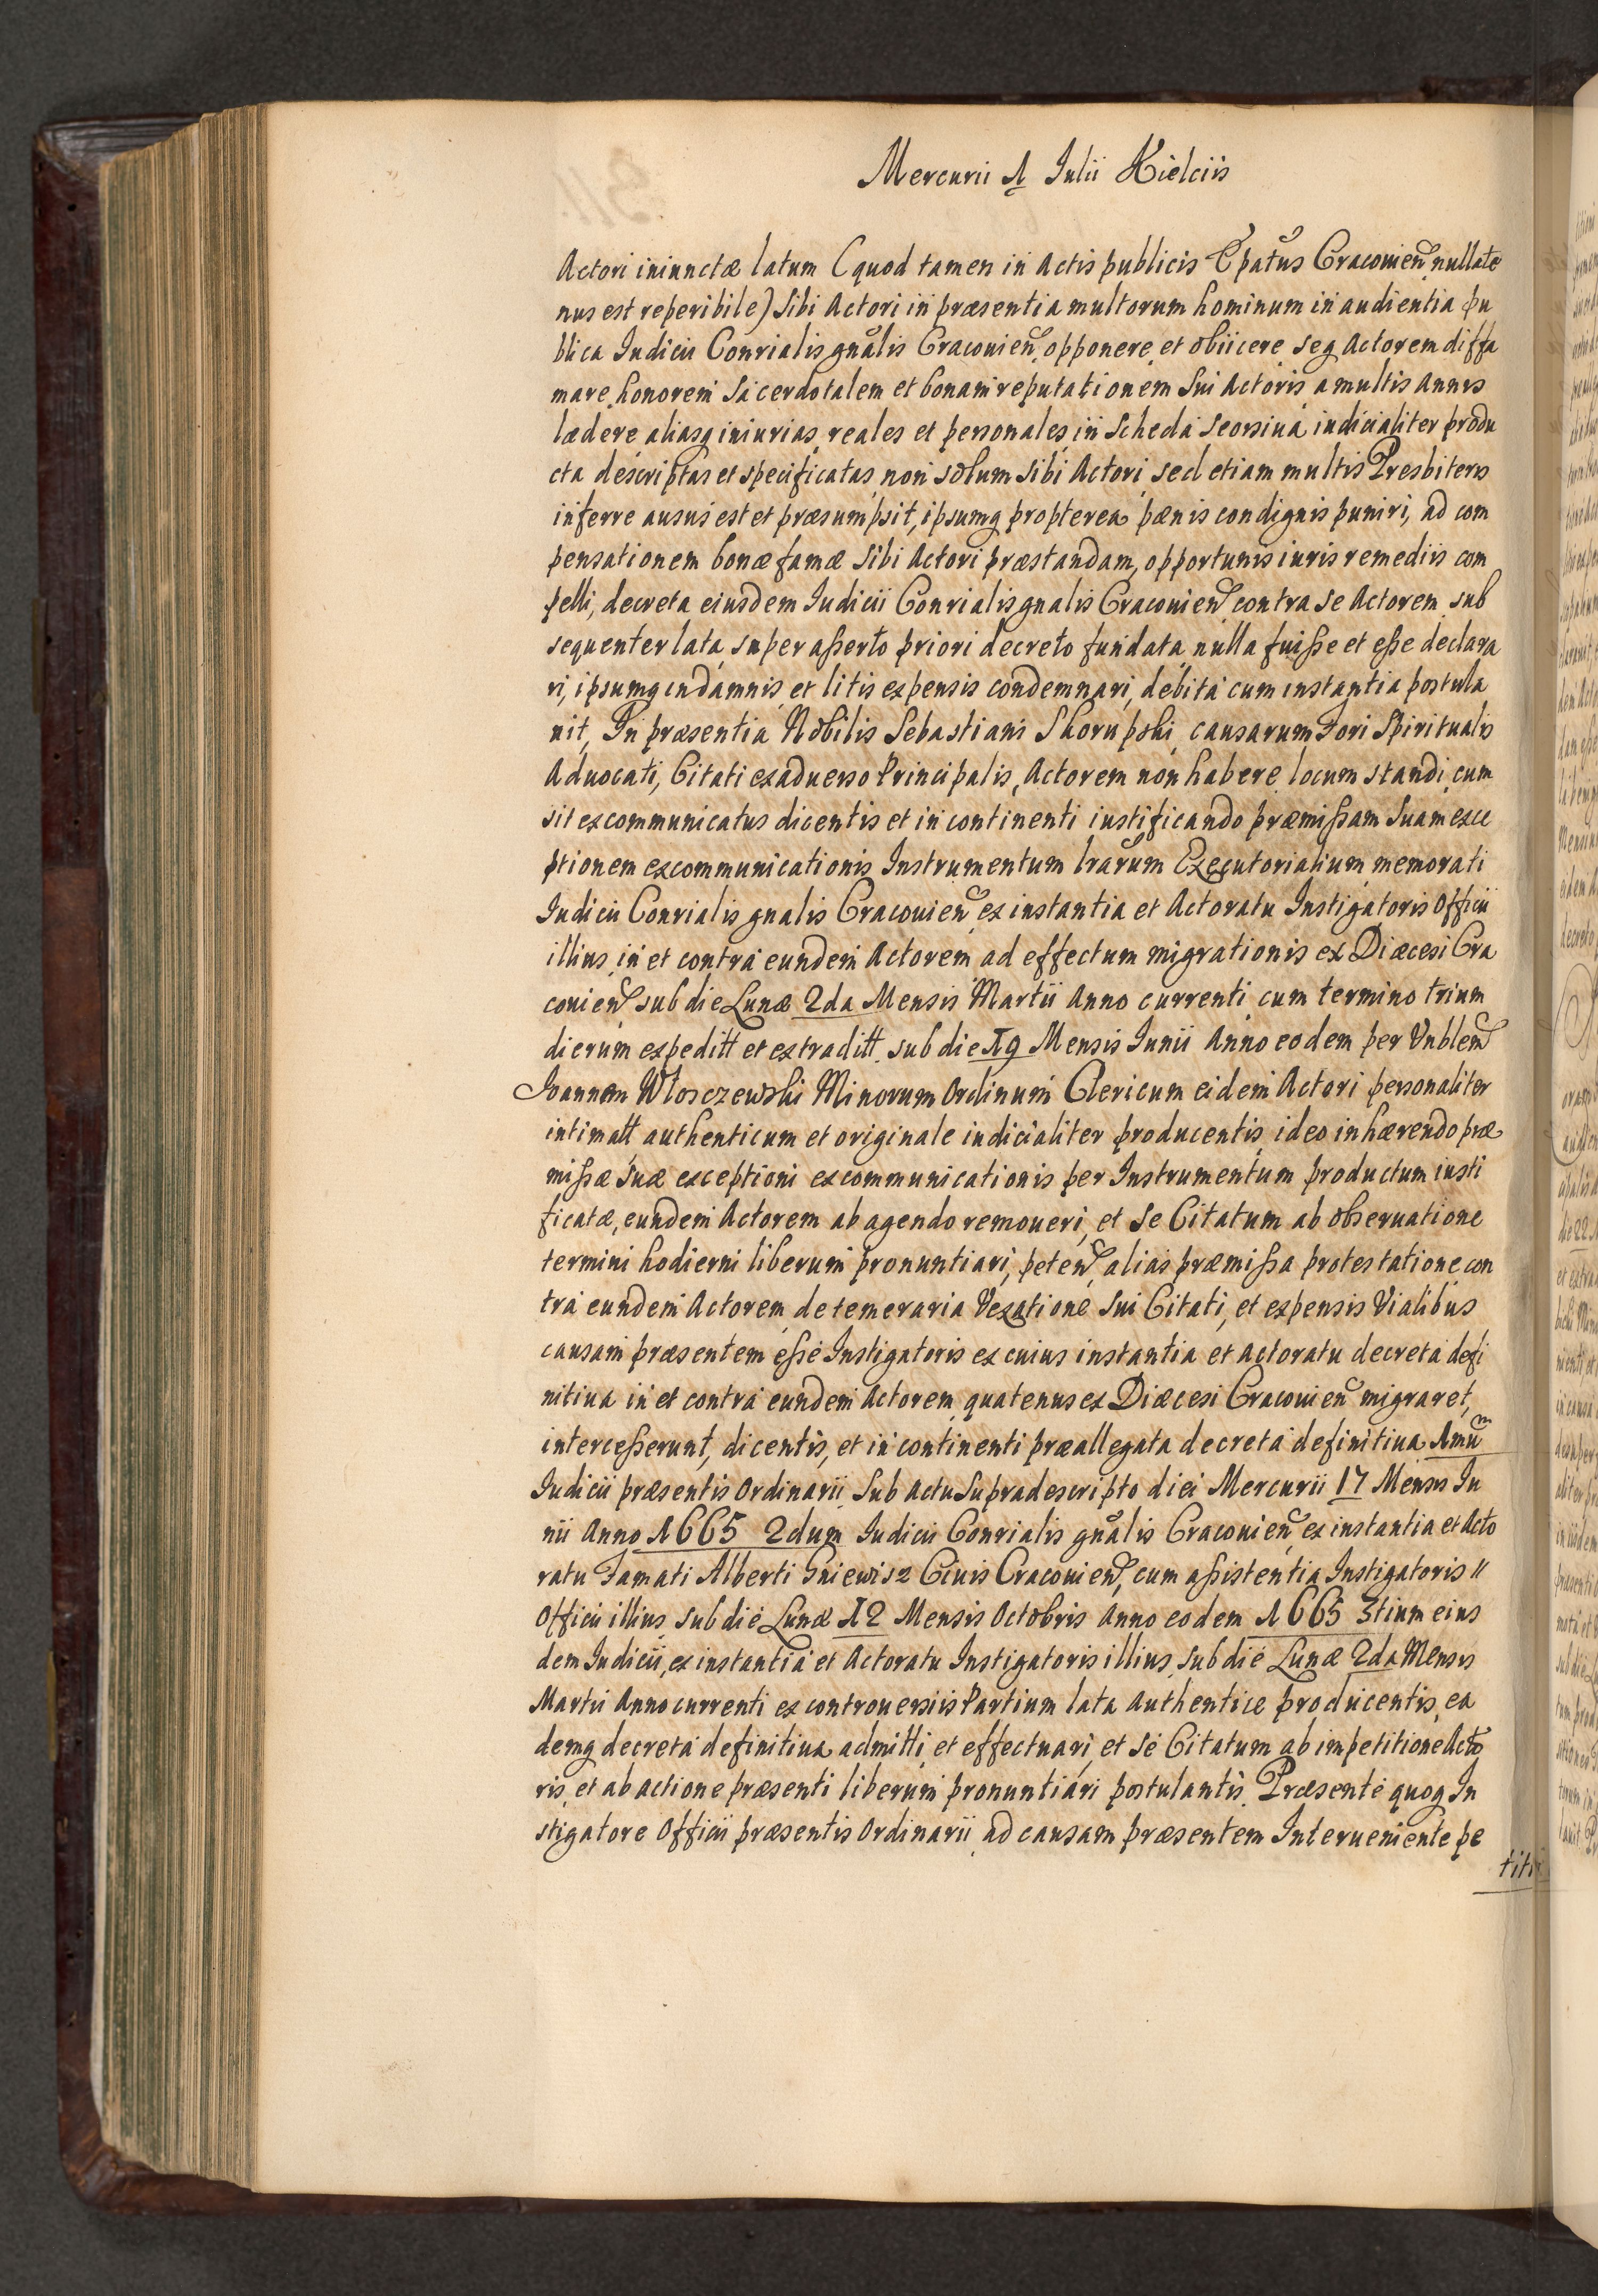 Mercurii 1 Iulii Kielciis
Actori iniunctæ latum (quod tamen in Actis publicis Epatus Cracouien nullate
nus est reperibile) sibi Actori in præsentia multorum hominum in audientia pu
blica Iudicii Consrialis gnalis Cracouien opponere et obiicere seq Actorem diffa
mare honorem Sacerdotalem et bonam reputationem sui Actoris a multis Annis
lædere aliasq iniurias reales et personales in Scheda seorsiua iudicialiter produ
cta descriptas et specificatas non solum sibi Actori sed etiam multis Presbiteris
inferre ausus est et præsumpsit, ipsumq propterea pænis condignis puniri, ad com
pensationem bonæ famæ sibi Actori præstandam, opportunis iuris remediis com
pelli, decreta eiusdem Iudicii Conrialis gnalis Cracouien contra se Actorem sub
sequenter lata super asserto priori decreto fundata nulla fuisse et esse declara
ri, ipsumq in damnis et litis expensis condemnari, debita cum instantia postula
uit, In præsentia Nobilis Sebastiani Skorupski causarum Fori Spiritualis
Aduocati, Citati ex aduerso Principalis, Actorem non habere locum standi, cum
sit excommunicatus dicentis et in continenti iustificando præmissam suam exce
ptionem excommunicationis Instrumentum lrarum Executorialium memorati
Iudicii Conrialis gnalis Cracouien ex instantia et Actoratu Instigatoris Officii
illius in et contra eundem Actorem ad effectum migrationis ex Diæcesi Cra
couien sub die Lunæ 2da Mensis Martii Anno currenti cum termino trium
dierum expeditt et extraditt sub die 19 Mensis Iunii Anno eodem per Vnblem
Ioannem Wlosczewski Minorum Ordinum Clericum eidem Actori personaliter
intimatt authenticum et originale iudicialiter producentis ideo inhærendo præ
missæ suæ exceptioni excommunicationis per Instrumentum productum iusti
ficatæ, eundem Actorem ab agendo remoueri, et se Citatum ab obseruatione
termini hodierni liberum pronuntiari, peten alias præmissa protestatione con
tra eundem Actorem de temeraria Vexatione sui Citati, et expensis Vialibus
causam præsentem esse Instigatoris ex cuius instantia et actoratu decreta defi
nitiua in et contra eundem Actorem quatenus ex Diæcesi Cracouien migraret,
intercesserunt, dicentis, et in continenti præallegata decreta definitiua 1mu
Iudicii præsentis Ordinarii sub actu supradescripto diei Mercurii 17 Mensis Iu
nii Anno 1665 2dum Iudicii Conrialis gnalis Cracouien ex instantia et Acto
ratu Famati Alberti Gniewisz Ciuis Cracouien, cum assistentia Instigatoris "
Officii illius sub die Lunæ 12 Mensis Octobris Anno eodem 1665 3tium eius
dem Iudicii, ex instantia et Actoratu Instigatoris illius sub die Lunæ 2da Mensis
Martii Anno currenti ex controuersiis Partium lata Authentice producentis ea
demq decreta definitiua admitti et effectuari et se Citatum ab impetitione Acto
ris et ab actione præsenti liberum pronuntiari postulantis. Præsente quoq In
stigatore Officii præsentis Ordinarii ad causam præsentem Interueniente pe